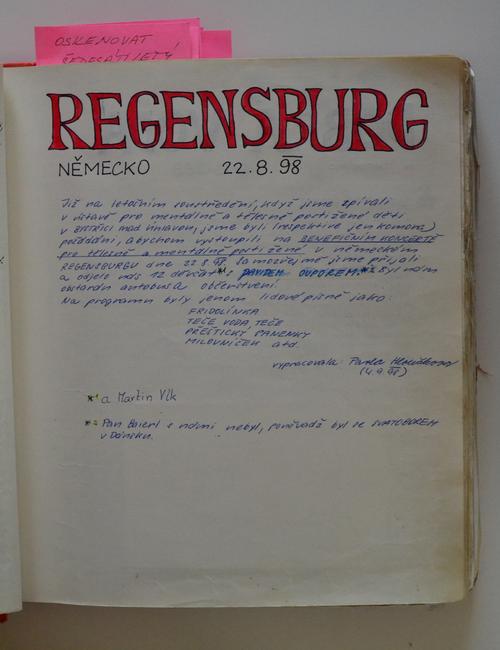 OSKENOVAT
ŠEDESÁTILETÝ
REGENSBURG
NĚMECKO 22.8.98
Již na letošním soustředění, když jsme zpívali
v ústavě pro mentálně a tělesně postižené děti
v BYSTŘICI nad Úhlavou, jsme byli (respektive jen komora)
požádáni, abychom vystoupili na BENEFIČNÍM KONCERTĚ
pro tělesně a mentálně postižené v německém
REGENSBURGU dne 22.8.98. Samozřejmě jsme přijali
a odjelo nás 12 děvčat *1 s DAVIDEM DUDOREM. *2 Byl nám
obstarán autobus a občerstvení.
Na programu byly jenom lidové písně jako:
FRIDOLÍNKA
TEČE VODA, TEČE
PŘEŠTICKÝ PANENKY
MILOVNÍČEK atd.
vypracovala: Pavla
(4.9.98)
*1 a Martin Vlk
*2 Pan Baierl s námi nebyl, poněvadž byl se SVATOBOREM
v Dánsku.